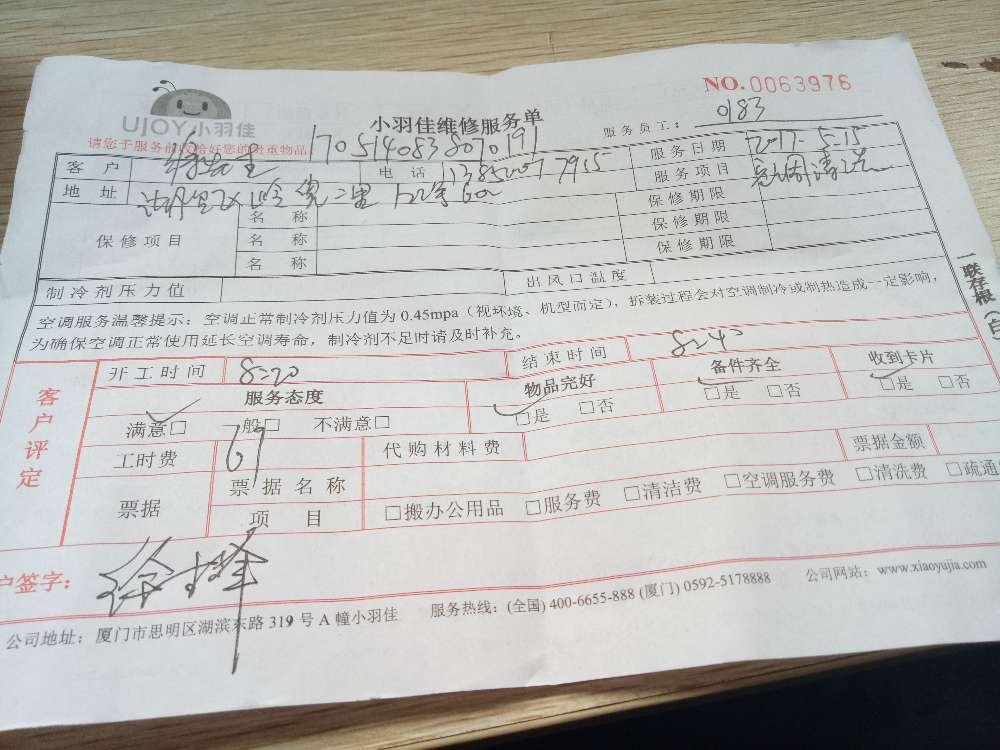 NO.0063976
UJOY小羽佳
小羽佳维修服务单
服务员工: 0183
请您于服务前收拾好您的贵重物品
客户 徐先生 电话
服务日期 2017-5-15
地址
服务项目 空调清洗
保修项目
名称 保修期限
名称 保修期限
名称 保修期限
制冷剂压力值 出风口温度
空调服务温馨提示: 空调正常制冷剂压力值为 0.45mpa (视环境、机型而定), 拆装过程会对空调制冷或制热造成一定影响,
为确保空调正常使用延长空调寿命, 制冷剂不足时请及时补充。
一联存根(白
客户评定
开工时间 8:20 结束时间 8:40
服务态度 物品完好 备件齐全 收到卡片
满意□ 一般□ 不满意□ □是 □否 □是 □否 □是 □否
工时费 69 代购材料费 票据金额
票据 票据名称
项目 □搬办公用品 □服务费 □清洁费 □空调服务费 □清洗费 □疏通
户签字:
公司地址: 厦门市思明区湖滨东路 319 号 A 幢小羽佳 服务热线: (全国) 400-6655-888 (厦门) 0592-5178888 公司网站: www.xiaoyujia.com